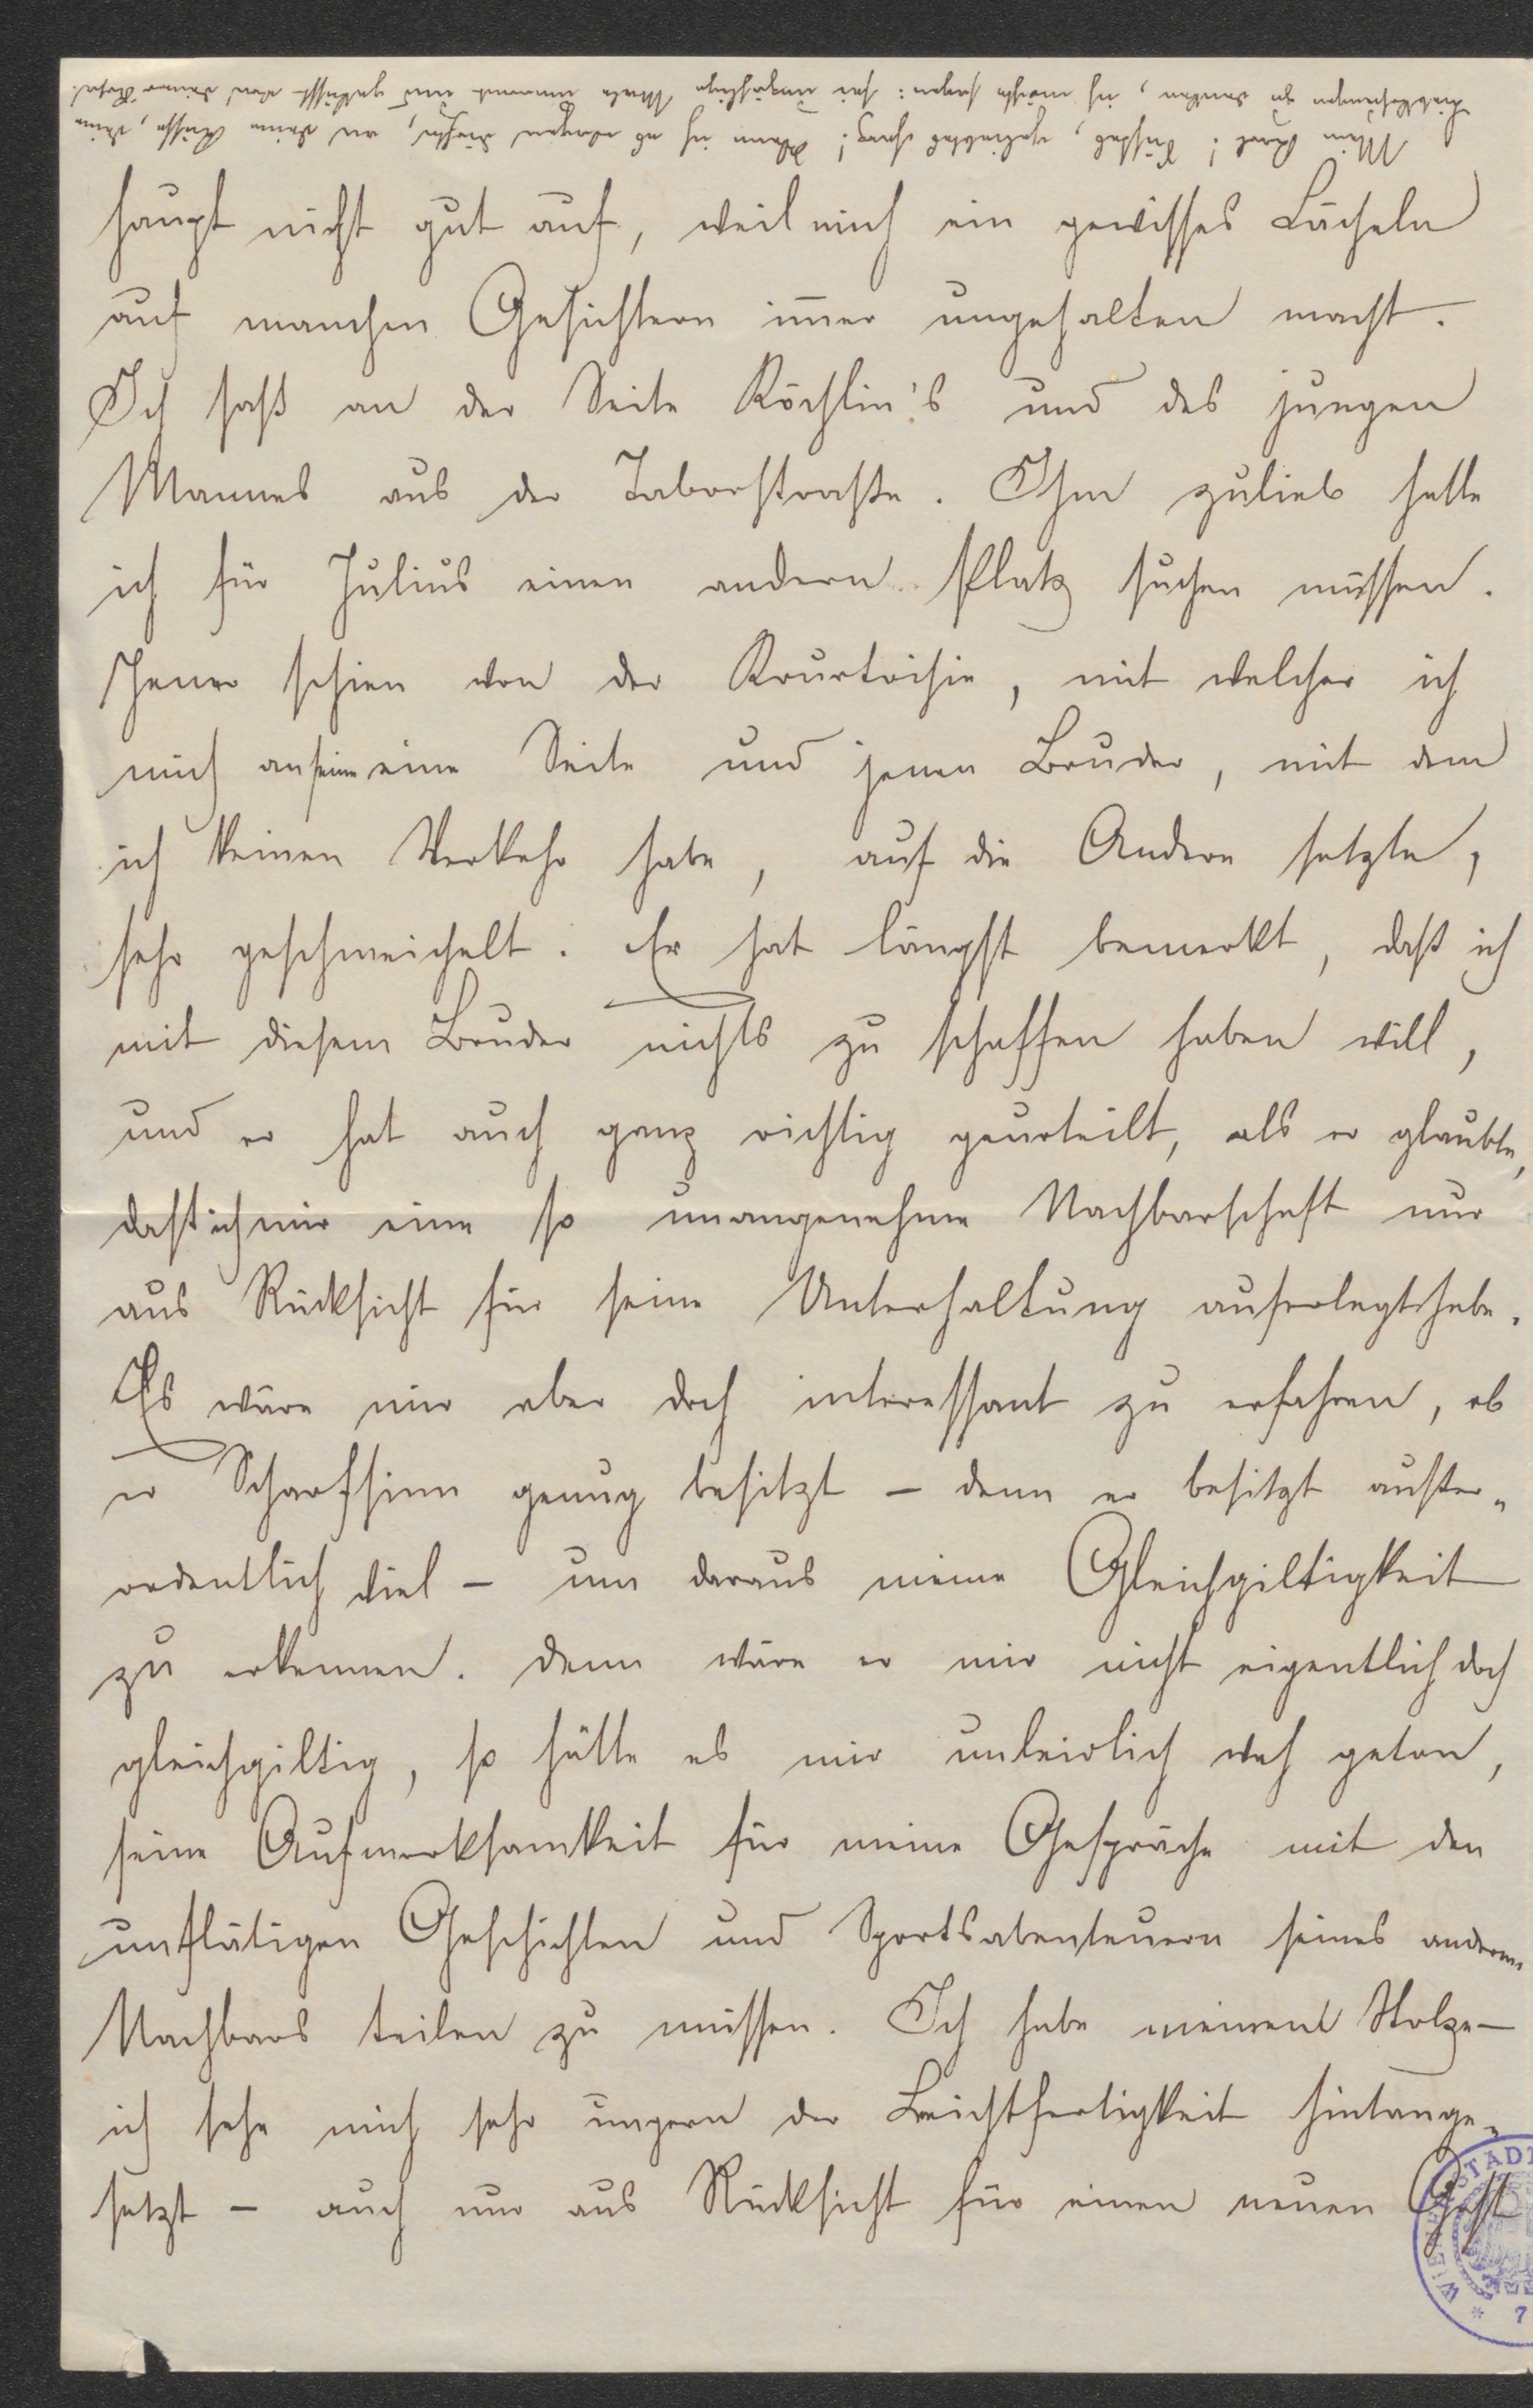 Mein Karl! Süßes, geliebtes Herz! Wenn ich es wagen dürfte, an deine Küsse, deine
Liebkosungen zu denken, ich möchte sagen: sei unzählige Male umarmt und geküsst von deiner Rosa.
haupt nicht gut auf, weil mich ein gewisses Lächeln
auf manchen Gesichtern im̅er ungehalten macht.
Ich saß an der Seite Köchlin's und des jungen
Mannes aus der Taborstraße. Ihm zulieb hatte
ich für Julius einen andern Platz suchen müssen.
Jener schien von der Kourtoisie, mit welcher ich
mich auf seine eine Seite und jenen Bruder, mit dem
ich keinen Verkehr habe, auf die Andere setzte,
sehr geschmeichelt. Er hat längst bemerkt, daß ich
mit diesem Bruder nichts zu schaffen haben will,
und er hat auch ganz richtig geurteilt, als er glaubte,
daß ich mir eine so unangenehme Nachbarschaft nur
aus Rücksicht für seine Unterhaltung auferlegt habe.
Es wäre mir aber doch interessant zu erfahren, ob
er Scharfsinn genug besitzt – denn er besitzt außer„
ordentlich viel – um daraus meine Gleichgiltigkeit
zu erkennen. Denn wäre er mir nicht eigentlich doch
gleichgiltig, so hätte es mir unleidlich weh getan,
seine Aufmerksamkeit für meine Gespräche mit den
unflätigen Geschichten und Sportsabenteuern seines anderen
Nachbars teilen zu müssen. Ich habe meinen Stolz –
ich sehe mich sehr ungern der Leichtfertigkeit hintange„
setzt – auch nur aus Rücksicht für einen neuen Gast
WIENER STADT
* 7